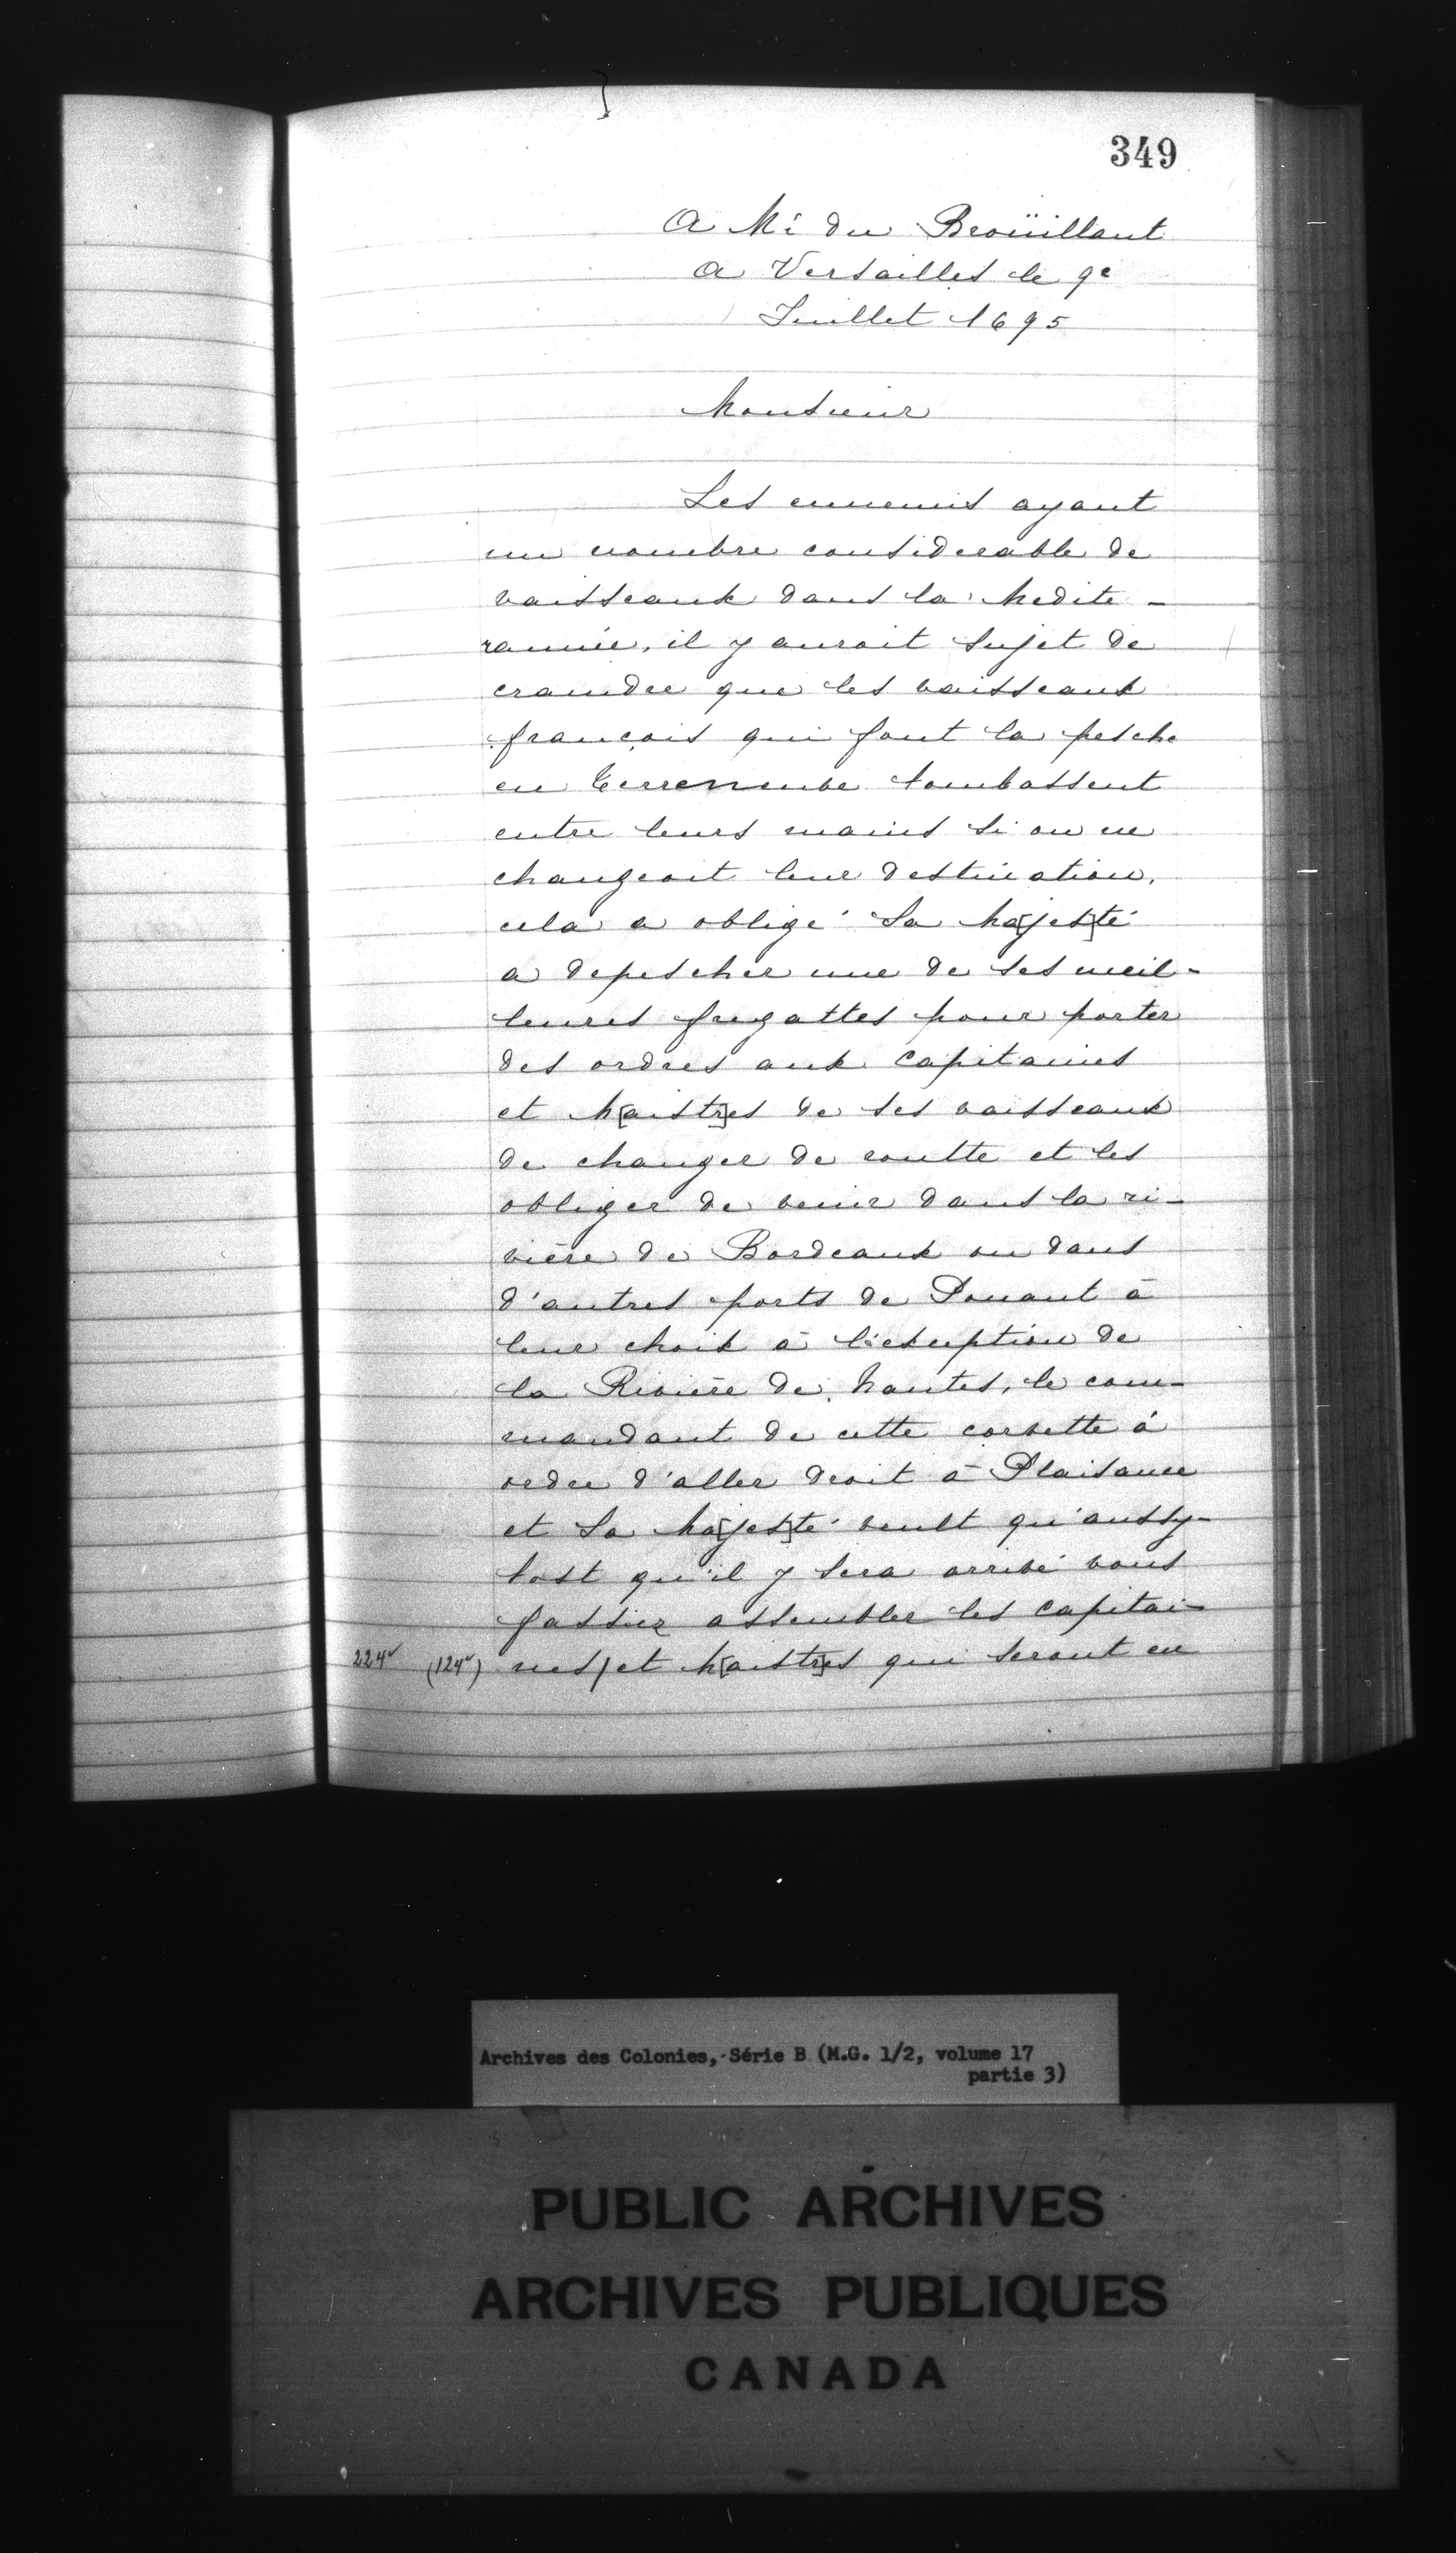 349
A Mr du Broüillant
A Versailles le 9e
Juillet 1695
Monsieur
Les ennemis ayant
un nombre considerable de
vaisseaux dans la Medite-
rannée, il y auroit sujet de
craindre que les vaisseaux
françois qui font la pesche
en Terreneuve tombassent
entre leurs mains si on ne
changeoit leur destination,
cela a obligé Sa Ma[jes]té
a depescher une de ses meil-
leures fregattes pour porter
des ordres aux capitaines
et M[aistr]es de ses vaisseaux
de changer de routte et les
obliger de venir dans la ri-
vière de Bordeaux ou dans
d'autres ports de Ponant à
leur choix à l'exception de
la Rivière de Nantes, le com-
mandant de cette corvette à
ordre d'aller droit à Plaisance
et Sa Ma[jes]té veult qu'aussy-
tost qu'il y sera arrivé vous
fassiez assembler les capitai-
224v (124v) nes/et M[aistr]es qui seront en
Archives des Colonies, Série B (M.G. 1/2, volume 17
partie 3)
PUBLIC ARCHIVES
ARCHIVES PUBLIQUES
CANADA